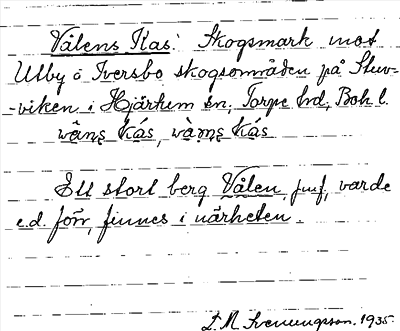 Valens Kas: Skogsmark mot
Utby o Iversbo skogsområden på Sluv-
-viken i Hjärtum sn, Torpe hd, Boh l.
Ett stort berg Vålen, jmf, varde
e.d. förr, finnes i närheten.
L. M. Svenungsson. 1935.